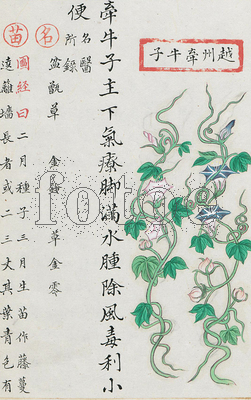 越州牽牛子
牽牛子主下氣療脚滿水腫除風毒利小
便名醫所錄
名盆甑草 金鈴 草金零
苗圖經曰二月種子三月生苗作藤蔓
遶籬墻長者或二三丈其葉青色有
fotoe